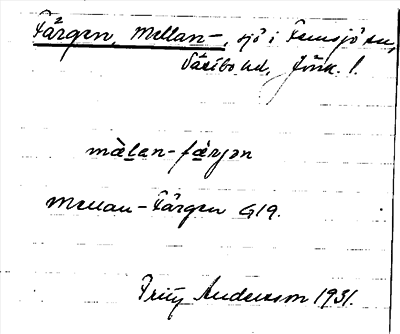 Färgen, Mellan-, sjö i Femsjö sn,
Västbo hd, Jönk. l.
mèlan-færjən
Mellan-Färgen G19.
Fritz Andersson 1931.